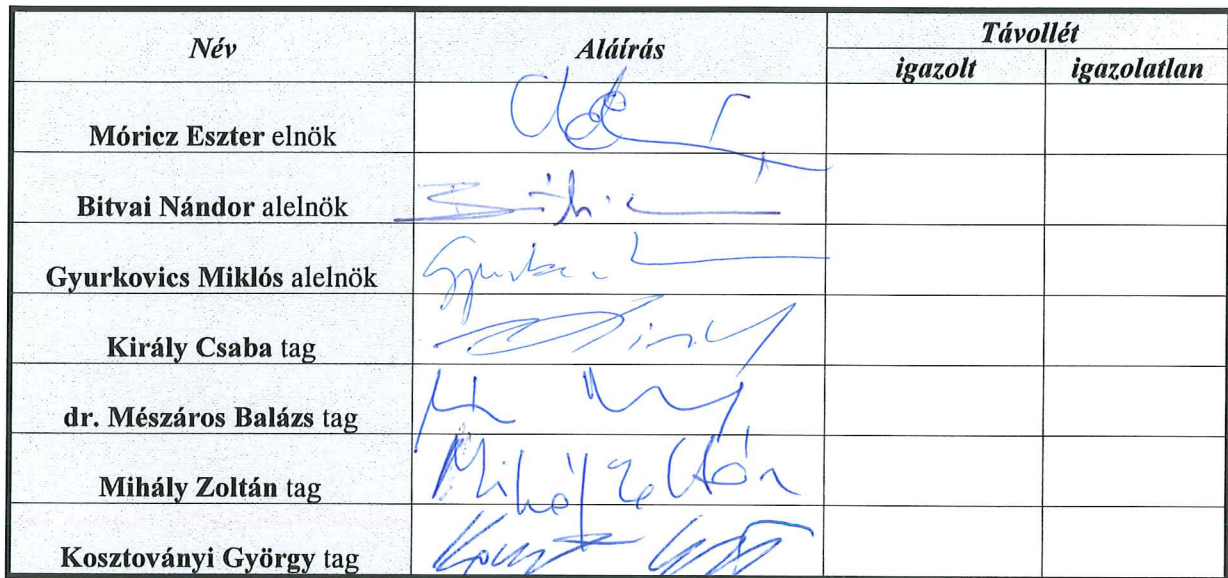 Név Aláírás Távollét
igazolt igazolatlan
Móricz Eszter elnök
Bitvai Nándor alelnök
Gyurkovics Miklós alelnök
Király Csaba tag
dr. Mészáros Balázs tag
Mihály Zoltán tag Mihály Zoltán
Kosztoványi György tag